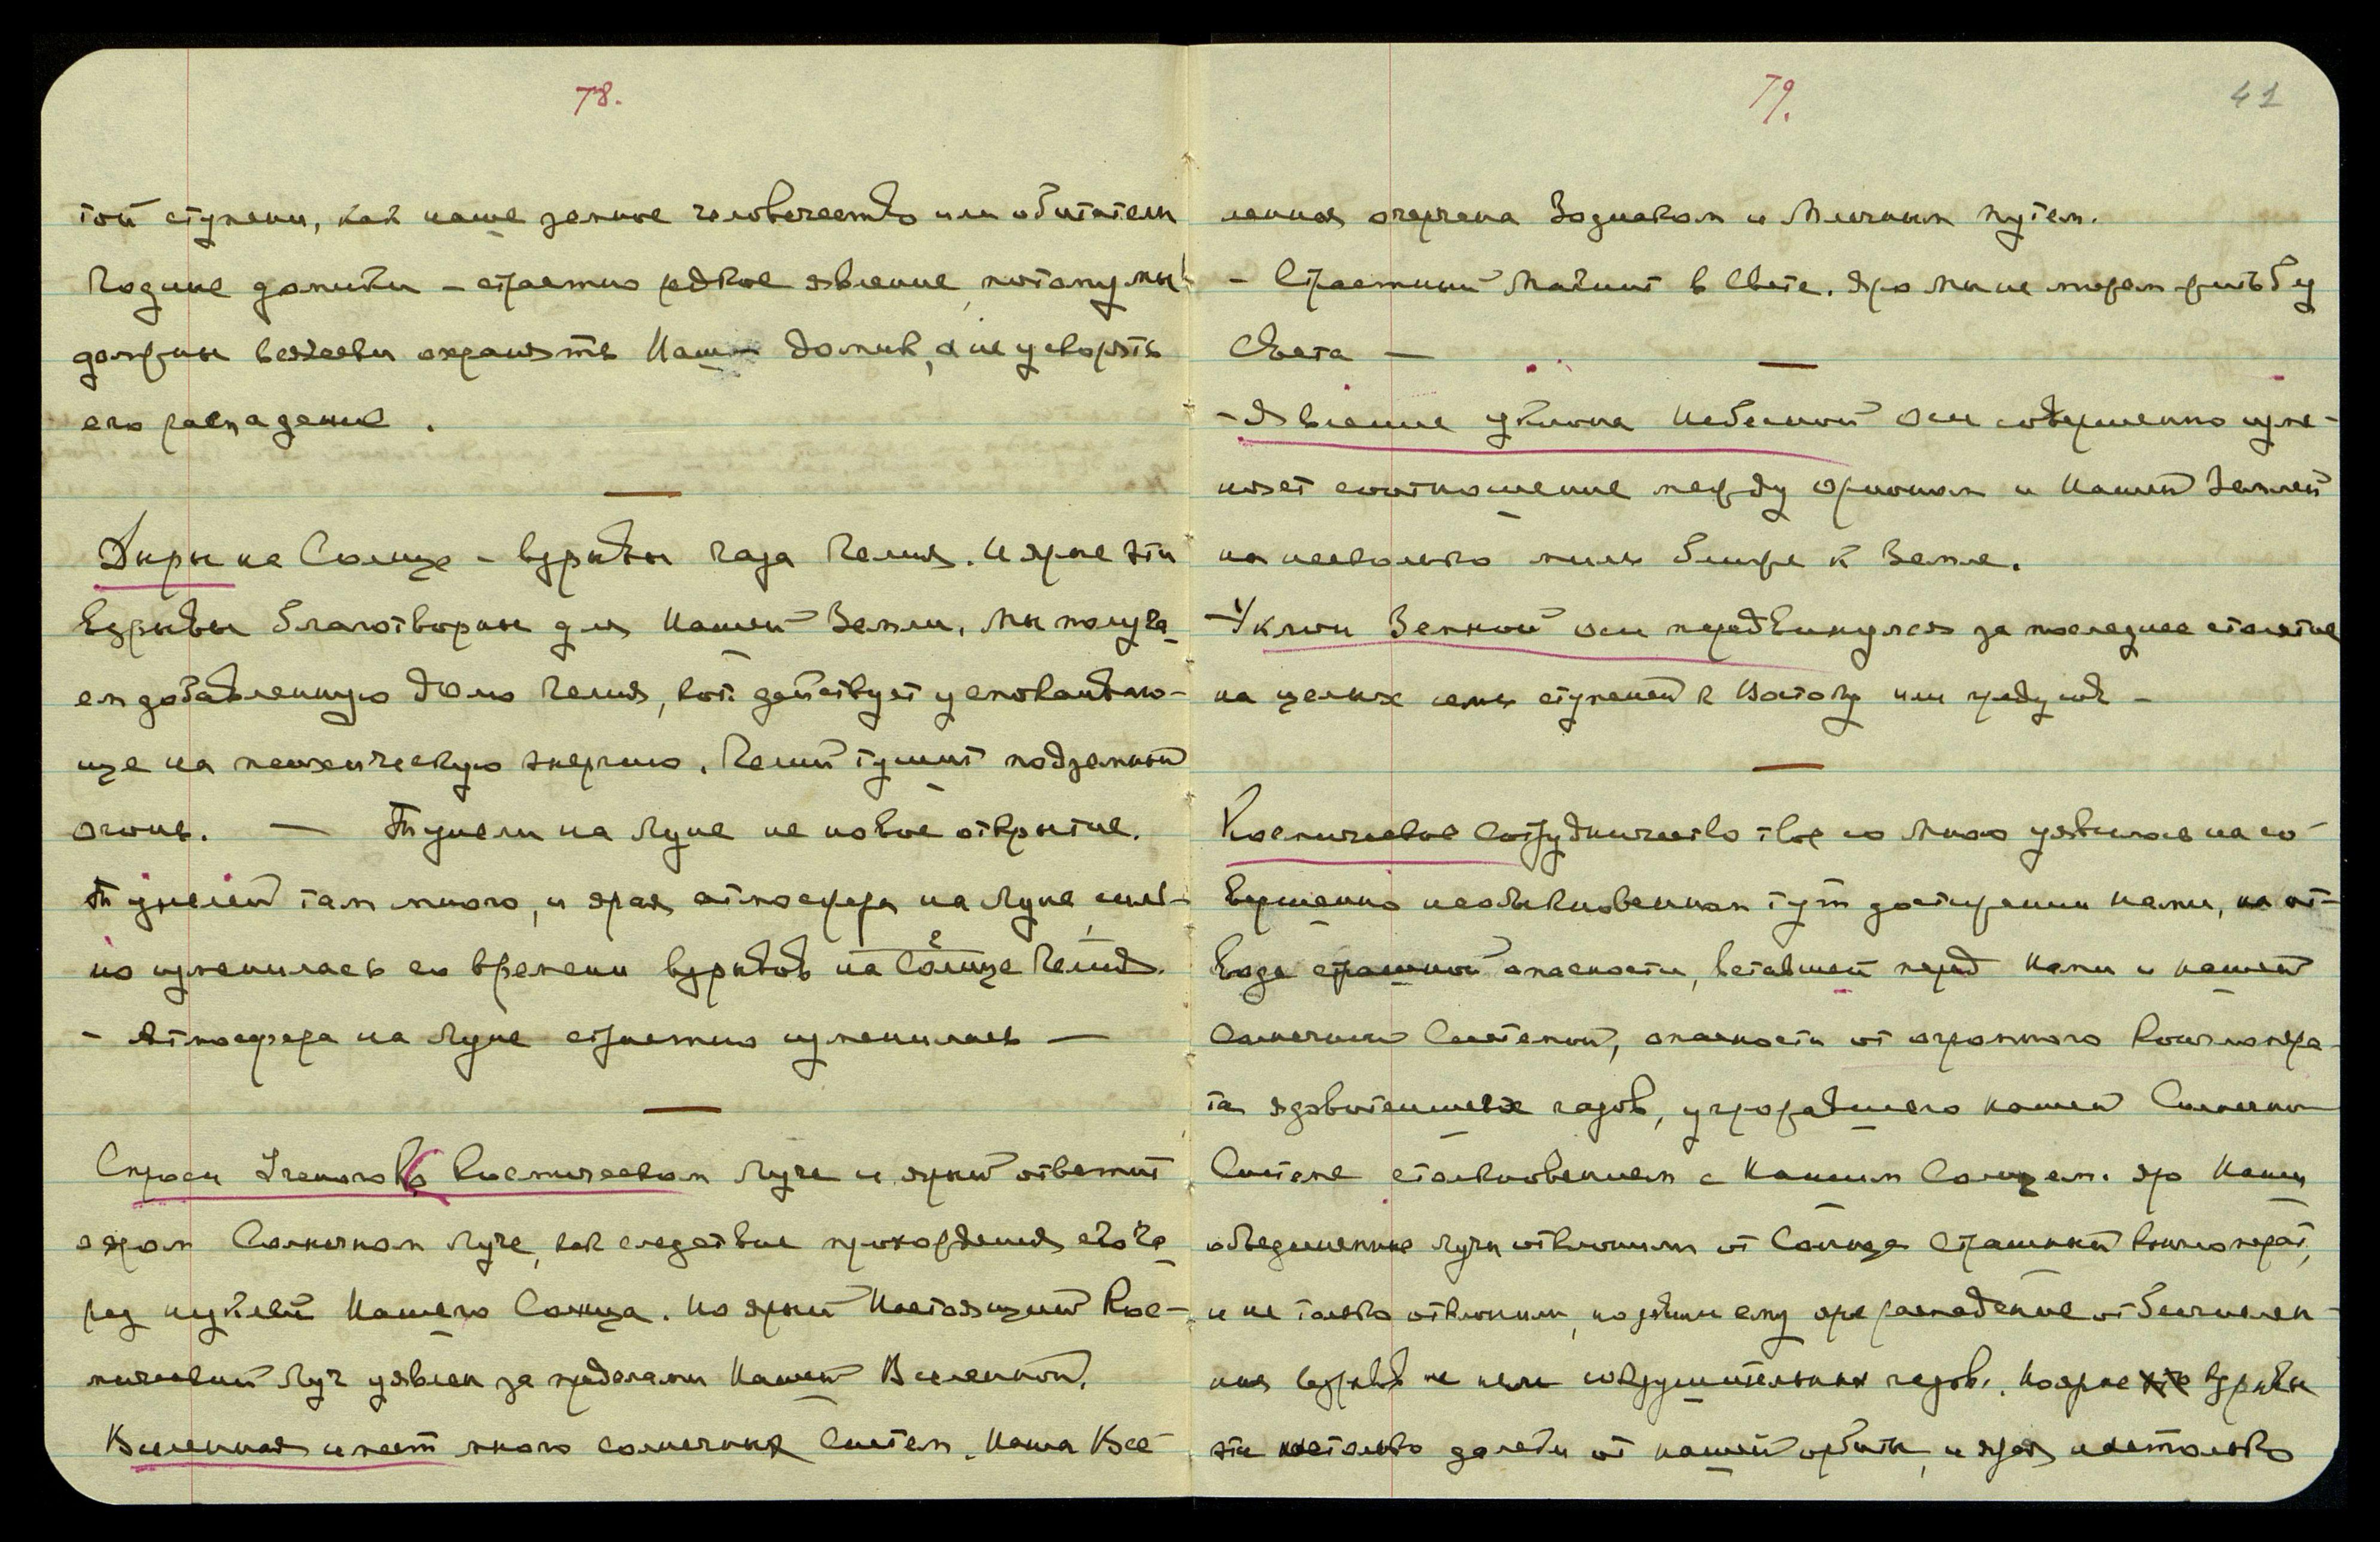 78.
той ступени, как наше земное человечество или обитатели
Родине домики – страстно редкое явление, потому мы
должны всячески охранять Наш домик, а не ускорять
его распадение.
Дыры на Солнце – взрывы газа Гелия. И ярые эти
взрывы благотворны для Нашей Земли. Мы получа-
ем добавленную долю Гелия, кот. действует успокаиваю-
ще на психическую энергию. Гелий тушит подземный
огонь. — Тунели на Луне не новое открытие.
Тунелей там много, и ярая атмосфера на Луне силь-
но изменилась со времени взрывов на Солнце Гелия.
– Атмосфера на Луне страстно изменилась —
Спроси Ученого о Космическом Луче и ярый ответит
о яром Солнечном Луче, как следствие прохождения его че-
рез нуклей Нашего Солнца. Но ярый Настоящий Кос-
мический Луч уявлен за пределами Нашей Вселенной.
Вселенная имеет много солнечных Систем. Наша Все-
79.
41
ленная очерчена Зодиаком и Млечным Путем.
– Страстный Магнит в Свете. Яро Мы не можем жить без
Света —
– Явление уклона Небесной Оси совершенно изме-
няет соотношение между Орионом и Нашей Землей
на несколько миль ближе к Земле.
– Уклон Земной оси передвинулся за последнее столетие
на целых семь ступеней к Востоку или градусов –
Космическое Сотрудничество твое со Мною уявилось на со-
вершенно необыкновенном тут достижении нами, на от-
воде страшной опасности, вставшей перед Нами и нашей
Солнечной Системой, опасности от огромного Конгломера-
та ядовитейших газов, угрожавшего нашей Солнечной
Системе столкновением с Нашим Солнцем. Яро Наши
объединенные Лучи отклонили от Солнца страшный конгломерат,
и не только отклонили, но ... ему ярое распадение от бесчислен-
ных взрывов не менее сокрушительных газов. Но ярые взрывы
эти настолько далеки от нашей орбиты, и ярая настолько